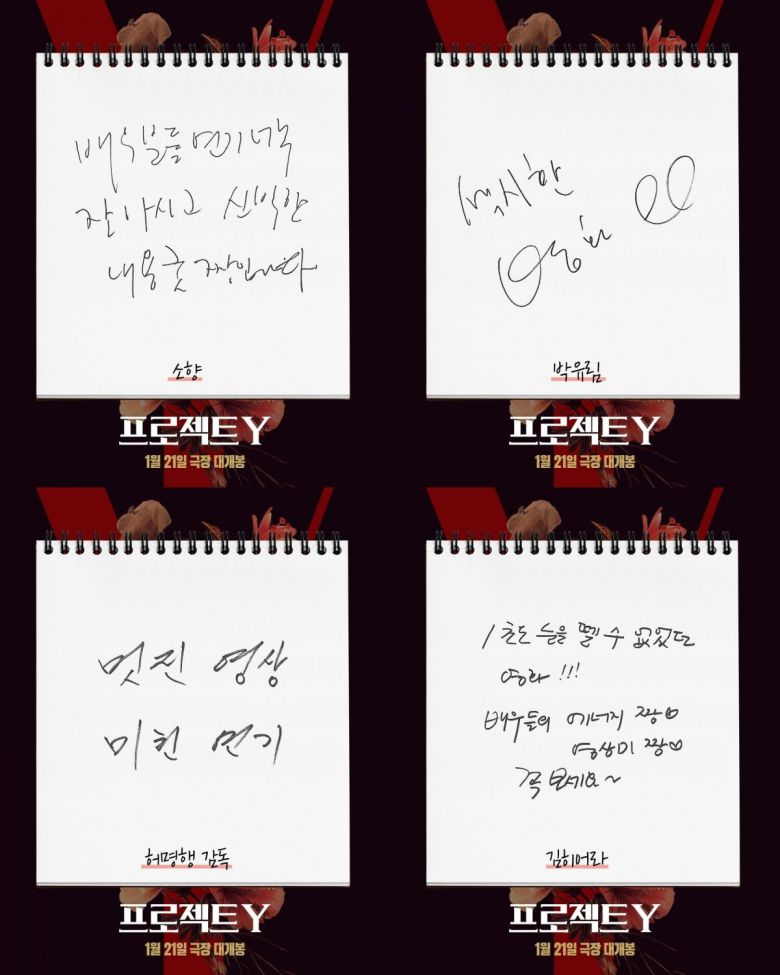 배우분들 연기 너무
잘하시고 신박한
내용 굿 짱입니다.
소향
프로젝트 Y
1월 21일 극장 대개봉
섹시한
영화
박유림
프로젝트 Y
1월 21일 극장 대개봉
멋진 영상
미친 연기
허명행 감독
프로젝트 Y
1월 21일 극장 대개봉
1초도 눈을 뗄 수 없었던
영화!!!
배우들의 에너지 짱♡
영상미 짱♡
꼭 보세요~
김히어라
프로젝트 Y
1월 21일 극장 대개봉